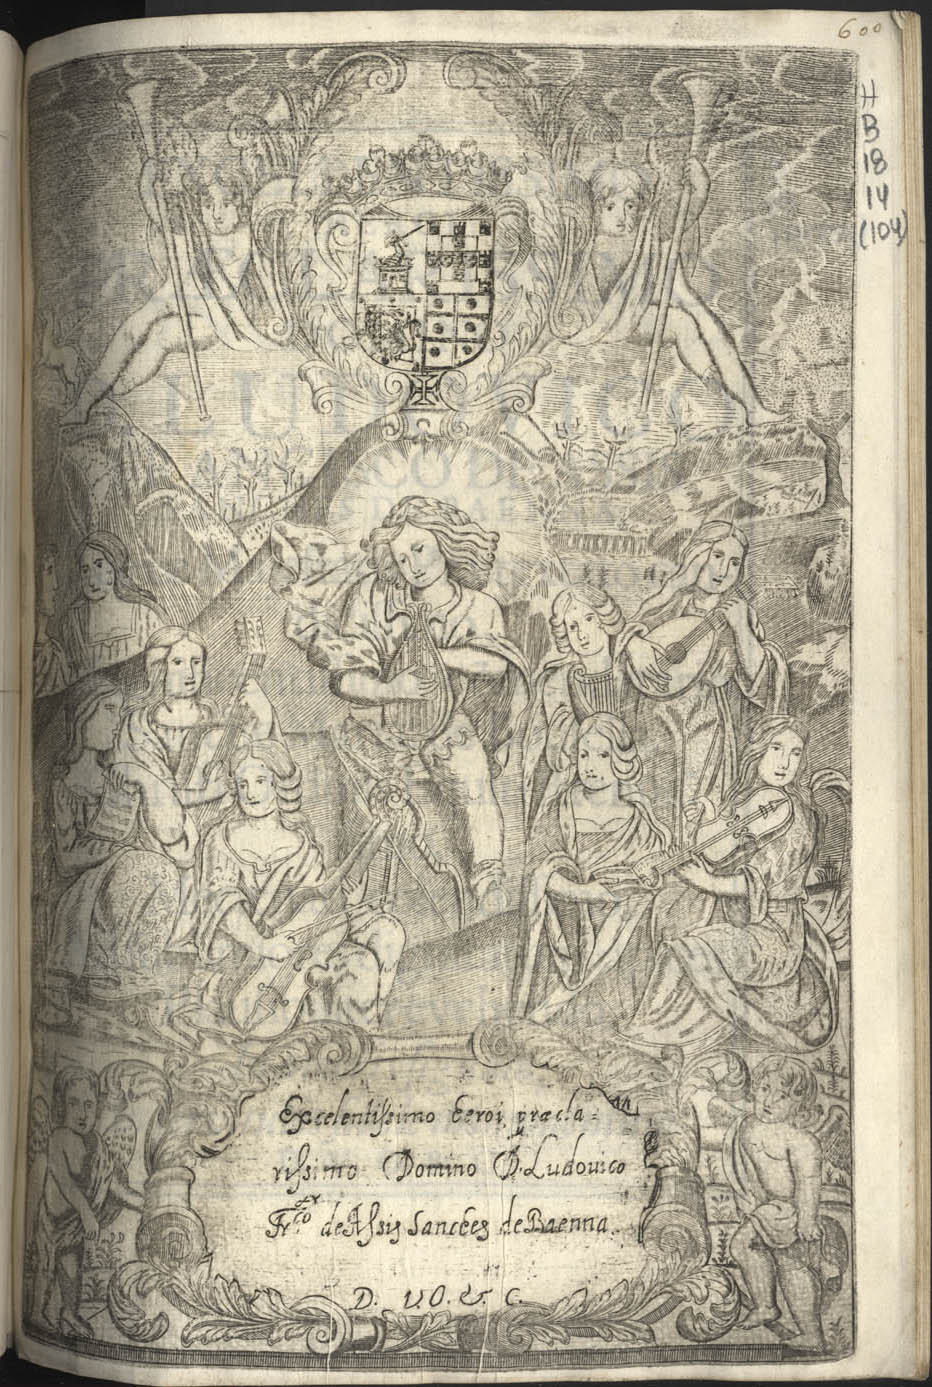 600
H
B
18
14
(104)
Excelentissimo heroi, præcla=
rissimo Domino D. Ludovico
Fr.co de Assis Sanches de Baenna.
D. V. O. & C.